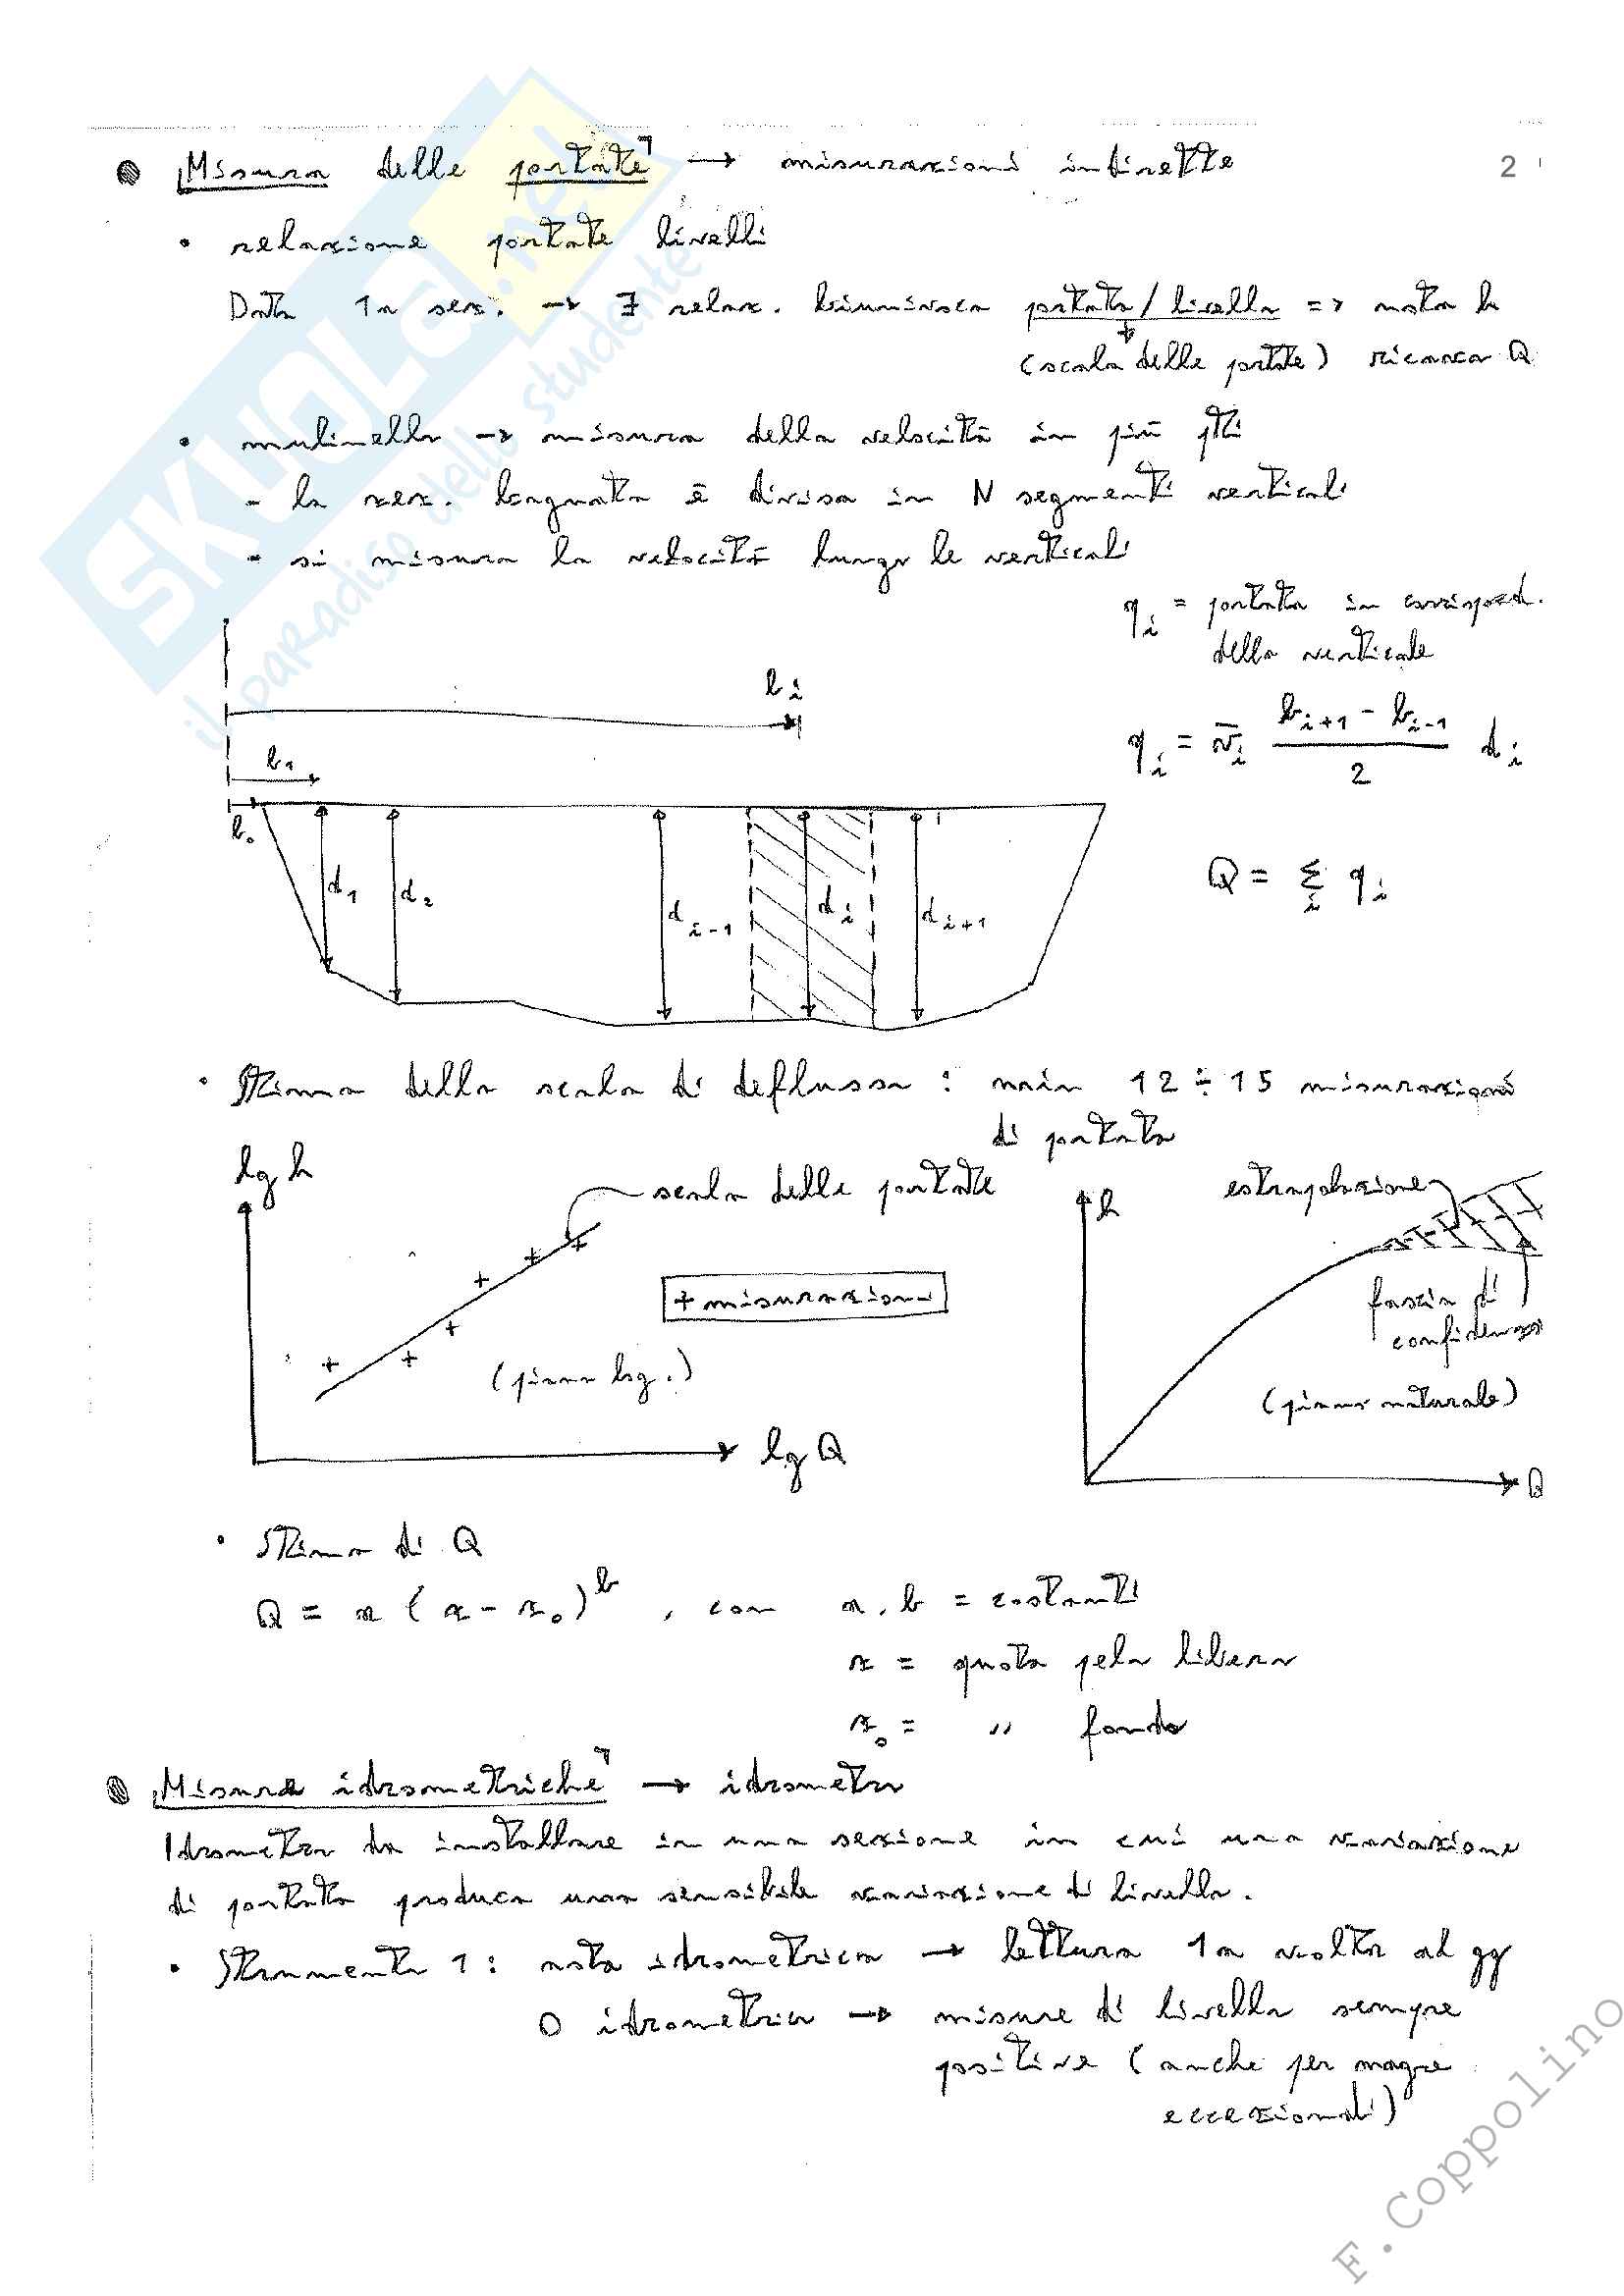 Misura delle portate → misurazioni indirette
2
• relazione portate livelli
Data 1a sez. → ∃ relaz. biunivoca portata/livello => noto h
(scala delle portate) ricavo Q
• mulinello → misura della velocità in più pti
- la sez. bagnata è divisa in N segmenti verticali
- si misura la velocità lungo le verticali
qi = portata in corrispond.
della verticale
bi
qi = v̄i (bi+1 - bi-1)/2 di
b1
b0
d1 d2 di-1 di di+1
Q = Σi qi
• Stima della scala di deflusso : min 12 ÷ 15 misurazioni
di portata
lg h
scala delle portate
h
estrapolazione
+ misurazioni
fascia di
confidenza
(piano log.)
(piano naturale)
lg Q
Q
• Stima di Q
Q = a (z - z0)^b , con a, b = costanti
z = quota pelo libero
z0 = " fondo
Misure idrometriche → idrometro
Idrometro da installare in una sezione in cui una variazione
di portata produca una sensibile variazione di livello.
• Strumento 1 : asta idrometrica → lettura 1a volta al gg
0 idrometrico → misure di livello sempre
positive (anche per magre
eccezionali)
SKUOLA.net
il paradiso dello studente
F. Coppolino